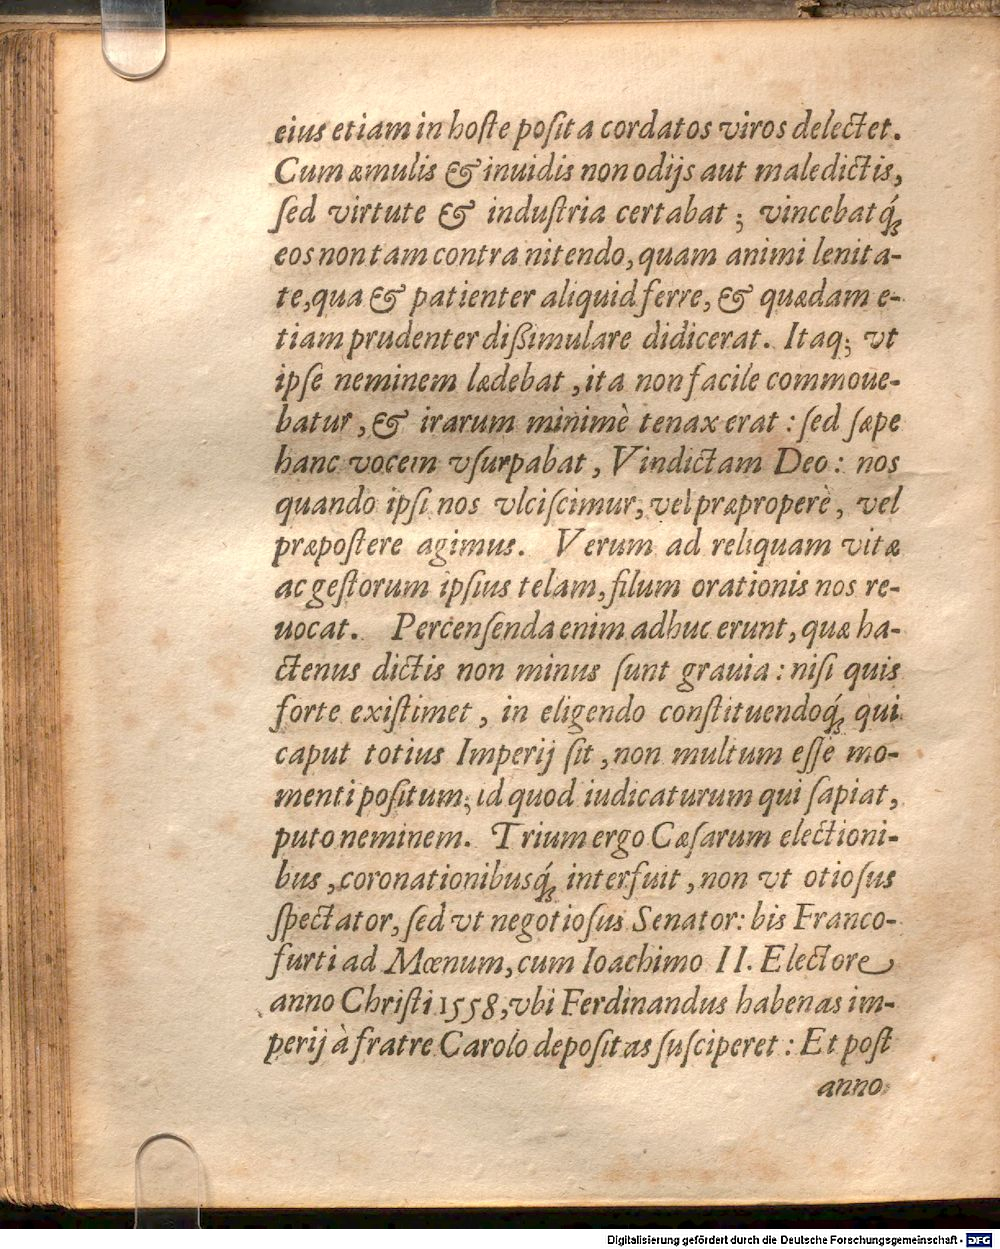 eius etiam in hoſte poſita cordatos viros delectet.
Cum æmulis & inuidis non odijs aut maledictis,
ſed virtute & induſtria certabat; vincebatq́;
eos non tam contra nitendo, quam animi lenita-
te, qua & patienter aliquid ferre, & quædam e-
tiam prudenter diſsimulare didicerat. Itaq; vt
ipſe neminem lædebat, ita non facile commoue-
batur, & irarum minimè tenax erat: ſed ſæpe
hanc vocem vſurpabat, Vindictam Deo: nos
quando ipſi nos vlciſcimur, vel præproperè, vel
præpoſtere agimus. Verum ad reliquam vitæ
ac geſtorum ipſius telam, filum orationis nos re-
uocat. Percenſenda enim adhuc erunt, quæ ha-
ctenus dictis non minus ſunt grauia: niſi quis
forte exiſtimet, in eligendo conſtituendoq́; qui
caput totius Imperij ſit, non multum eſſe mo-
menti poſitum; id quod iudicaturum qui ſapiat,
puto neminem. Trium ergo Cæſarum electioni-
bus, coronationibusq́; interfuit, non vt otioſus
ſpectator, ſed vt negotioſus Senator: bis Franco-
furti ad Mœnum, cum Ioachimo II. Electore
anno Chriſti 1558, vbi Ferdinandus habenas im-
perij à fratre Carolo depoſitas ſuſciperet: Et poſt
anno
Digitalisierung gefördert durch die Deutsche Forschungsgemeinschaft - DFG